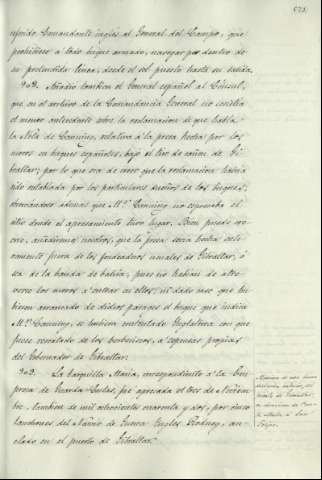 573.
referido Comandante inglés al General del Campo, que
prohibiese a todo buque armado, navegar por dentro de
su pretendida linea, desde el sol puesto hasta su salida.
Añadio tambien el General español al Cónsul,
que, en el archivo de la Comandancia General no existia
el menor antecedente sobre la reclamacion de que habla
la Nota de Canning, relativa á la presa hecha por los
moros en buques españoles, bajo el tiro de cañon de Gi-
braltar; por lo que era de creer que la reclamacion habria
sido entablada por los particulares dueños de los buques;
observandose ademas que Mr. Canning no espresaba el
sitio donde el apresamiento tuvo lugar. Bien puede ser
que la presa seria hecha cier-
tamente fuera de los fondeaderos usuales de Gibraltar, ó
sea de la banda de bahia, pues no habian de atre-
verse los moros a entrar en ellos; ni dado caso que hu-
bieran arrancado de dichos parages el buque que indica
Mr. Canning, se hubiera contentado Inglaterra con que
fuese rescatado de los berberiscos, a espensas propias
del Gobernador de Gibraltar.
La barquilla Maria, correspondiente a la Em-
presa de Guarda-Costas, fue apresada el tres de Noviem-
bre, tambien de mil ochocientos cuarenta y dos, por cinco
lanchones del Navio de Guerra Ingles Rodney, an-
clado en el puerto de Gibraltar.
puerto de Gibraltar,